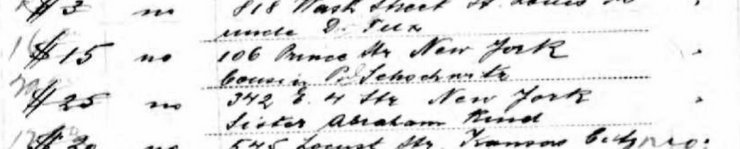 $3 no 818 Wash Street St. Louis Mo
uncle D.
$15 no 106 Prince Str New York
Cousin P. Schochnitz
$25 no 342 E. 4 Str New York
Sister Abraham Kind
$20 no 545 Locust Str. Kansas City Mo.